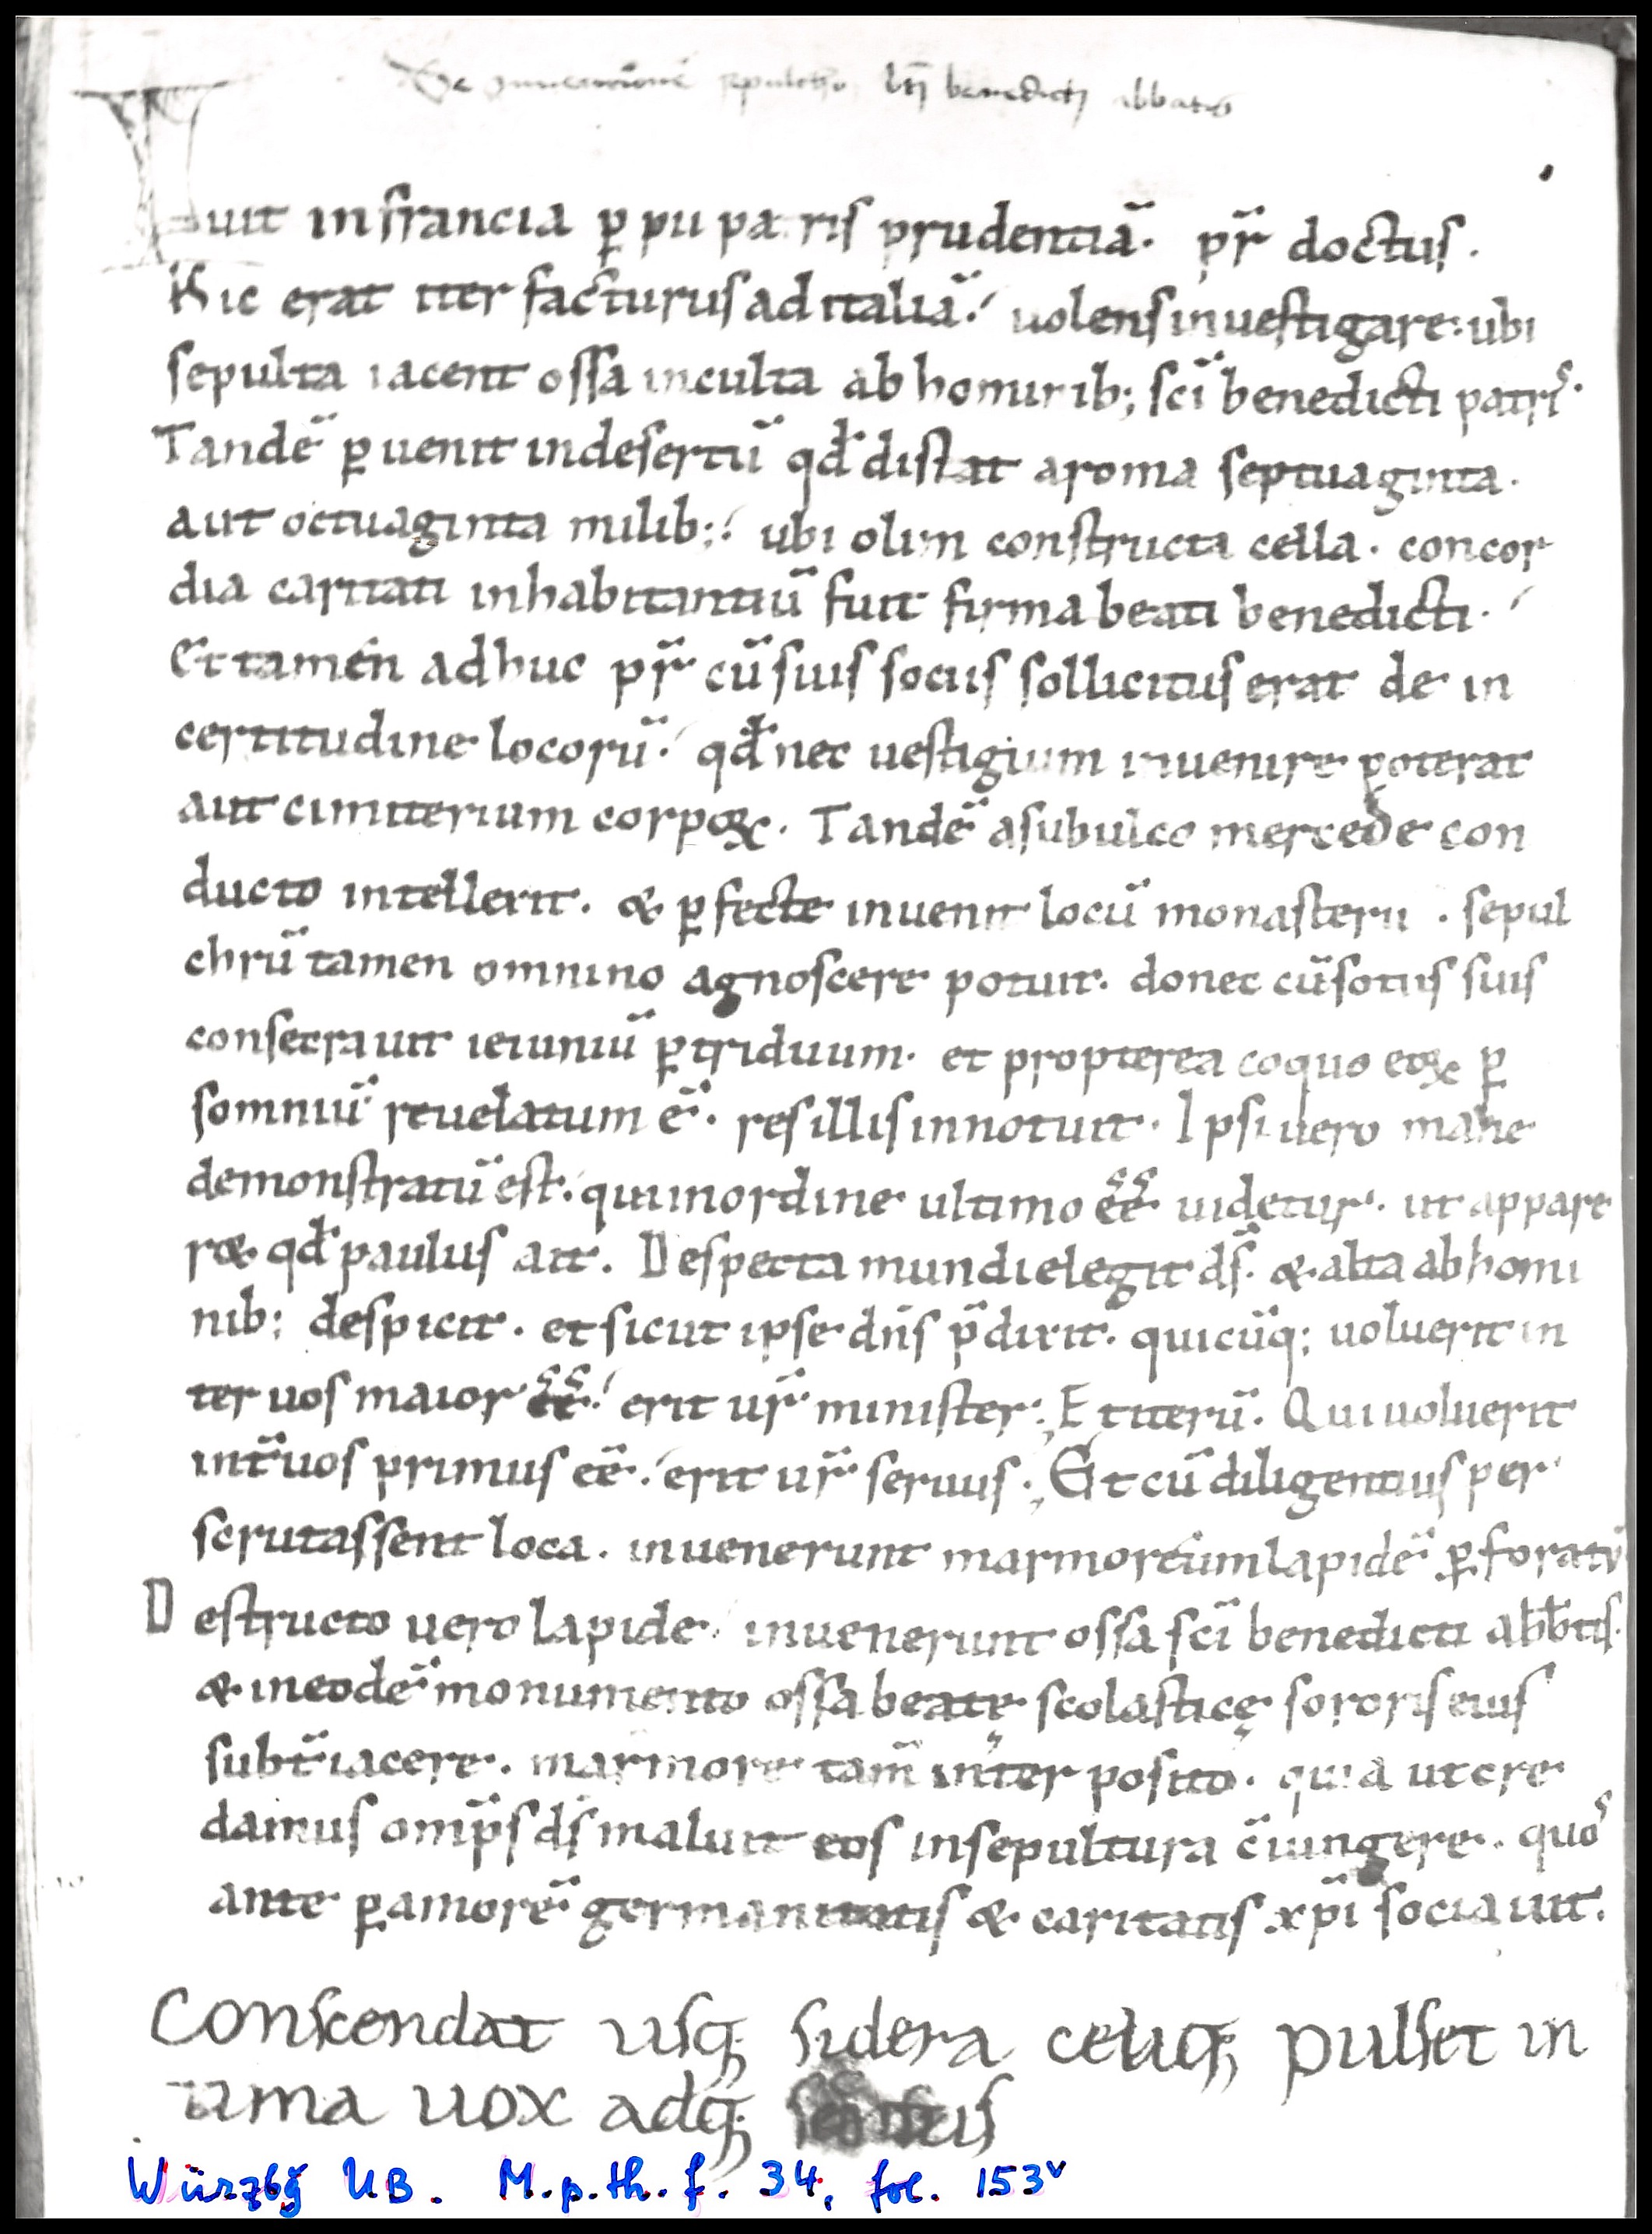 De inuencione sepulchri bti benedicti abbatis
Fuit in francia ꝑ pii patris prudentiā. pr̄ doctus.
Hic erat iter facturus ad italiā. uolens inuestigare. ubi
sepulta iacent ossa inculta ab hominib; sc̄i benedicti patris.
Tandē ꝑuenit in desertū qđ distat a roma septuaginta.
aut octuaginta milib; ubi olim constructa cella. concor
dia caritati inhabitantiū fuit firma beati benedicti.
Et tamen adhuc pr̄ cū suis sociis sollicitus erat de in
certitudine locorū. qđ nec uestigium inuenire poterat
aut cimiterium corpoꝝ. Tandē a subulco mercede con
ducto intellexit. & ꝑfecte inuenit locū monasterii. sepul
chrū tamen omnino agnoscere potuit. donec cū sotiis suis
consecrauit ieiuniū ꝑ triduum. et propterea coquo eoꝝ ꝑ
somniū reuelatum ē. res illis innotuit. Ipsi uero mane
demonstratū est. qui in ordine ultimo ēē uidetur. ut appare
r& qđ paulus ait. Despecta mundi elegit ds̄. & alta ab homi
nib; despicit. et sicut ipse dn̄s p̄dixit. quicūq; uoluerit in
ter uos maior ēē. erit ur̄ minister; Et iterū. Qui uoluerit
int̄ uos primus ēē. erit ur̄ seruus; Et cū diligentius per
scrutassent loca. inuenerunt marmoreum lapidē ꝑforatū
Destructo uero lapide inuenerunt ossa sc̄i benedicti abb̄tis.
& in eodē monumento ossa beatę scolasticę sororis eius
subt̄ iacere. marmore tam̄ inter posito. quia ut cre
damus omp̄s ds̄ maluit eos in sepultura c̄iungere. quos
ante ꝑ amorē germanitatis & caritatis xp̄i sociauit.
Conscendat usq; sidera celiq; pulset in
tima uox adq;
Würzbg UB. M.p.th.f. 34, fol. 153v